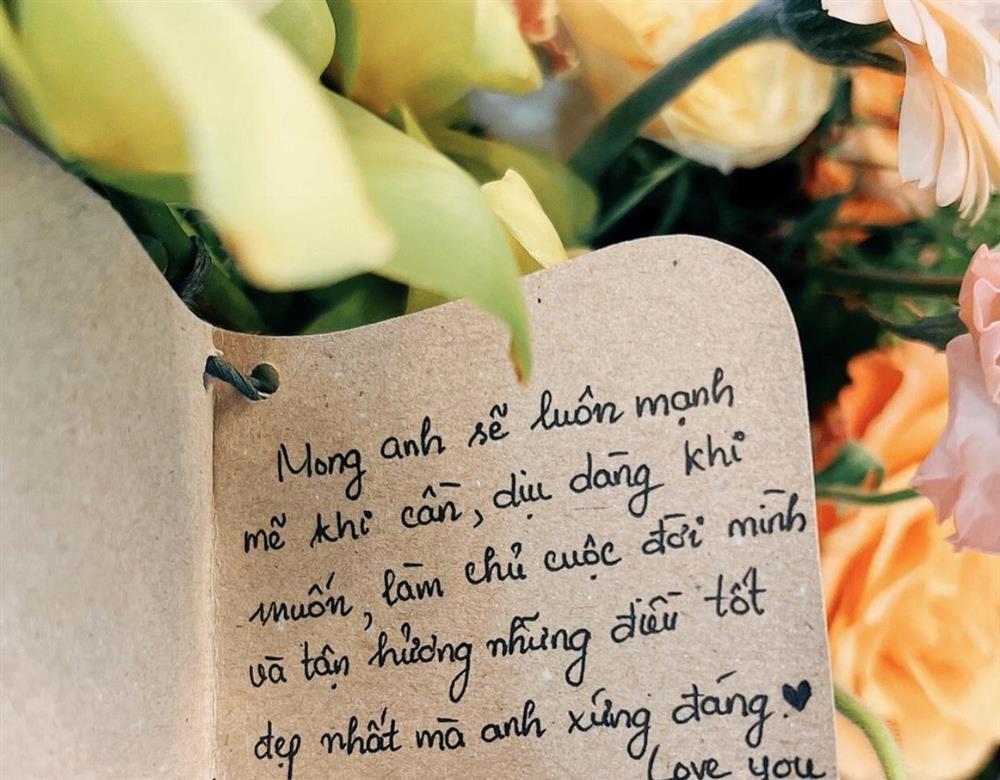 Mong anh sẽ luôn mạnh
mẽ khi cần, dịu dàng khi
muốn, làm chủ cuộc đời mình
và tận hưởng những điều tốt
đẹp nhất mà anh xứng đáng.♥
Love you